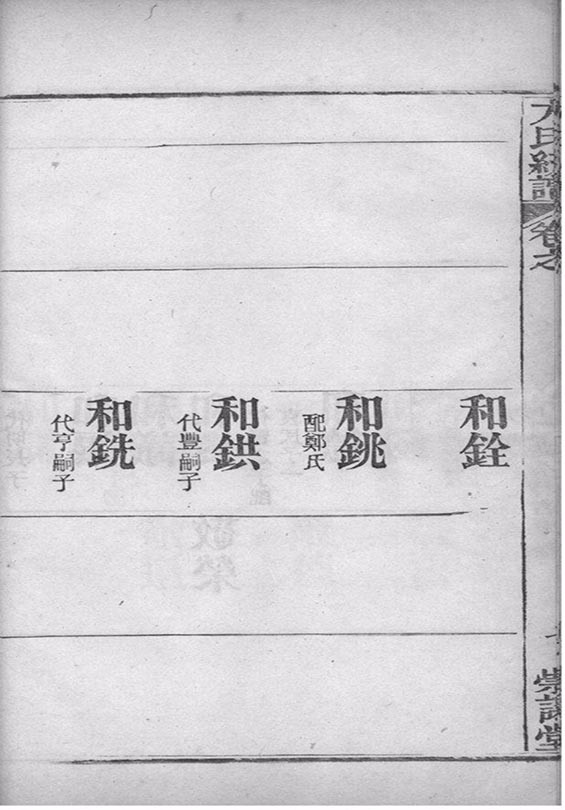 氏
卷之
和銓
和銚
配鄭氏
和鉷
代豐嗣子
和銑
代亨嗣子
堂